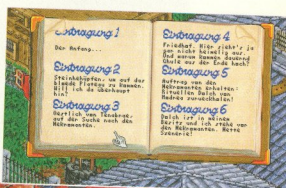 Eintragung 1
Der Anfang...
Eintragung 2
Steinhäpfen, um auf das
blaue Plateau zu kommen.
Will ich da überhaupt
hin?
Eintragung 3
Oestlich von Tenebrae,
auf der Suche nach dem
Nekromanten.
Eintragung 4
Friedhof. Hier sieht's ja
gar nicht heimelig aus.
Und warum kommen dauernd
Ghule aus der Ende hoch?
Eintragung 5
Auftrag von den
Nekromanten erhalten:
Rituellen Dolch von
Hadros zurueckholen!
Eintragung 6
Dolch ist in meinem
Besitz und ich stehe vor
den Nekromanten. Nette
Szenerie!